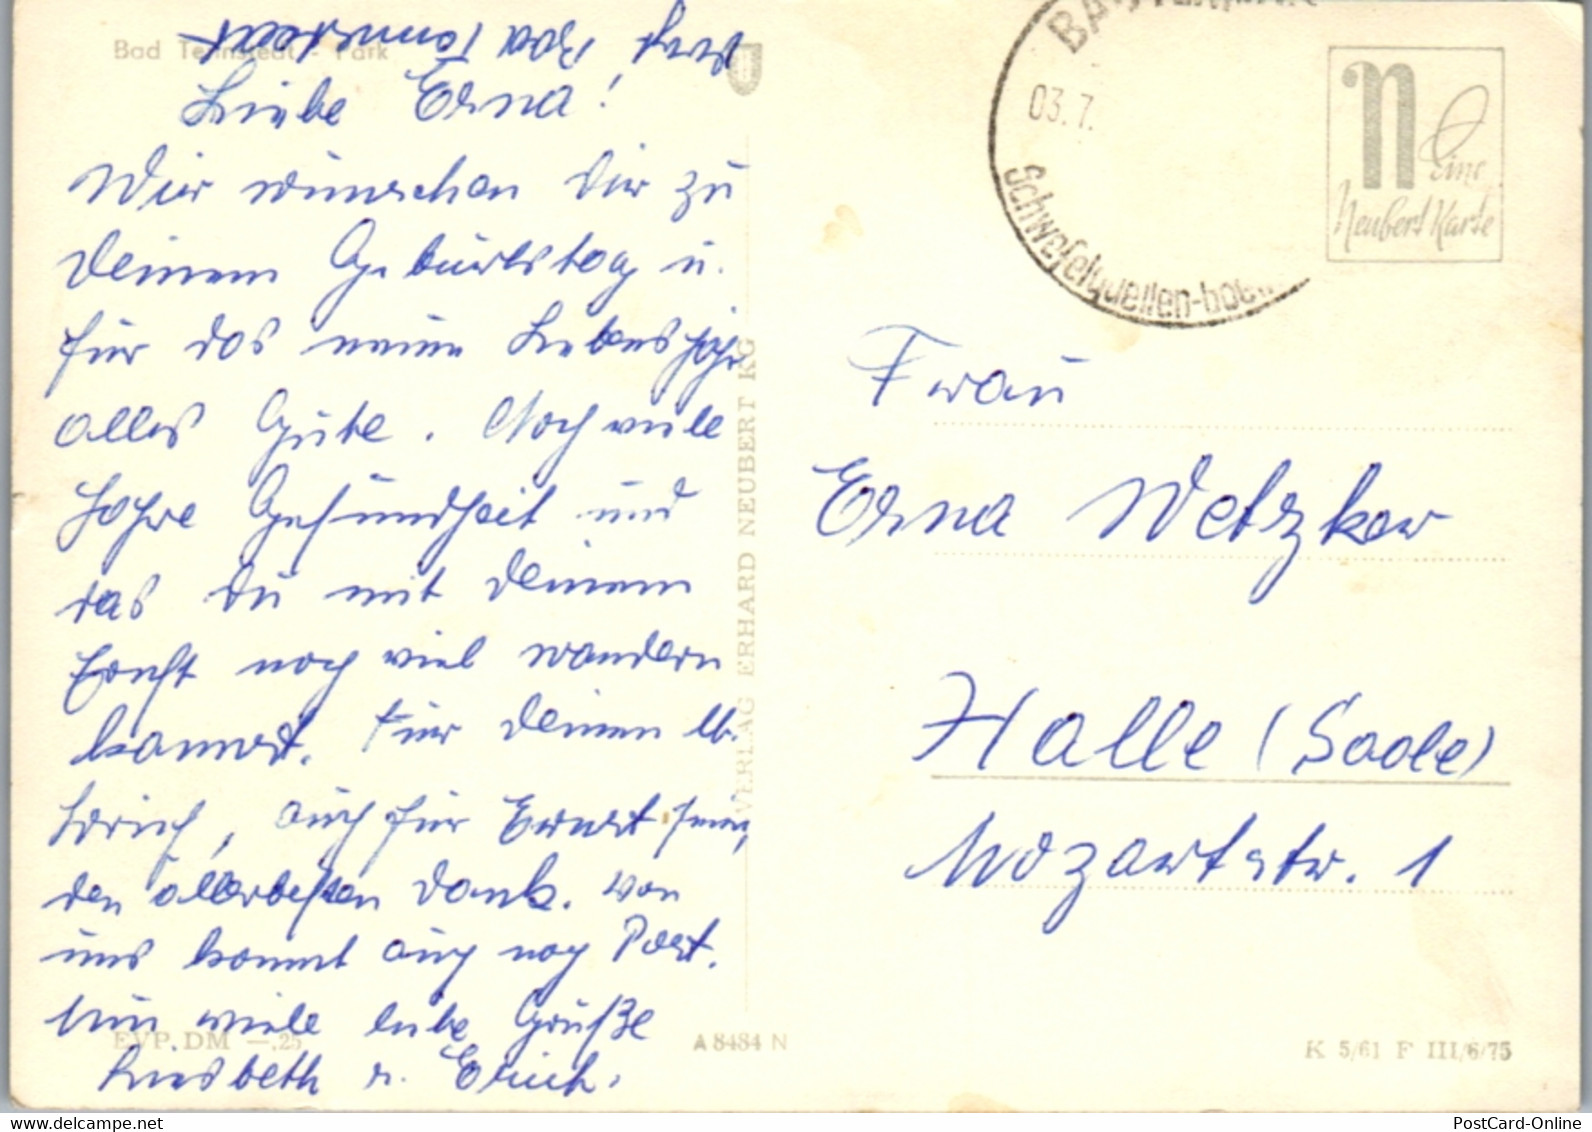 Bad Tennstedt - Park
Liebe Erna!
Wir wünschen Dir zu
Deinem Geburtstag u.
für das neue Lebensjahr
alles Gute. Noch viele
Jahre Gesundheit und
das Du mit Deinem
Ernst noch viel wandern
kannst. Für Deinen lb.
Brief, auch für Ernst seinen,
den allerbesten Dank. Von
uns kommt auch noch Post.
Nun viele liebe Grüße
Liesbeth u. Erich.
EVP. DM —.25
A 8484 N
VERLAG ERHARD NEUBERT KG
03.7.
Schwefelquellen-
N
Eine
Neubert Karte
Frau
Erna Wetzker
Halle (Saale)
Mozartstr. 1
K 5/61 F III/6/75
www.delcampe.net
PostCard-Online